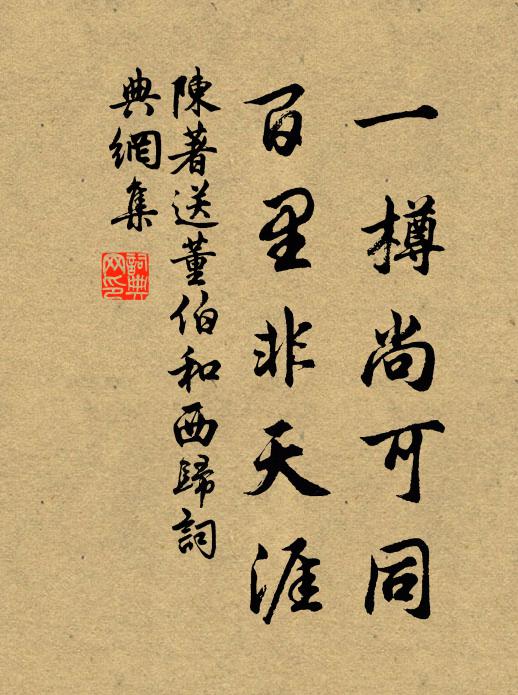 一樽尚可同
百里非天涯
陳著送董伯和西歸詞
典網集
詞典網印